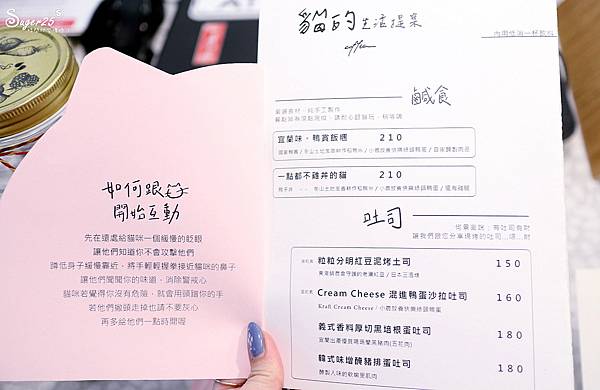 Suger25's
如何跟
開始互動
先在遠處給貓咪一個緩慢的眨眼
讓他們知道你不會攻擊他們
蹲低身子緩慢靠近，將手輕輕握拳接近貓咪的鼻子
讓他們聞聞你的味道，消除警戒心
貓咪若覺得你沒有危險，就會用頭蹭你的手
若他們撇頭走掉也請不要灰心
再多給他們一點時間喔
貓的生活提案
內用低消一杯飲料
鹹食
嚴選食材，純手工製作
宜蘭味。鴨賞飯糰 210
一點都不雞丼的貓 210
吐司
讓我們跟您分享現烤的吐司
粒粒分明紅豆泥烤土司 150
Cream Cheese 混進鴨蛋沙拉吐司 160
Kraft Cream Cheese / 小農放養快樂綠頭鴨蛋
義式香料厚切黑培根蛋吐司 180
韓式味增醃豬排蛋吐司 180
醃製入味的軟嫩里肌肉